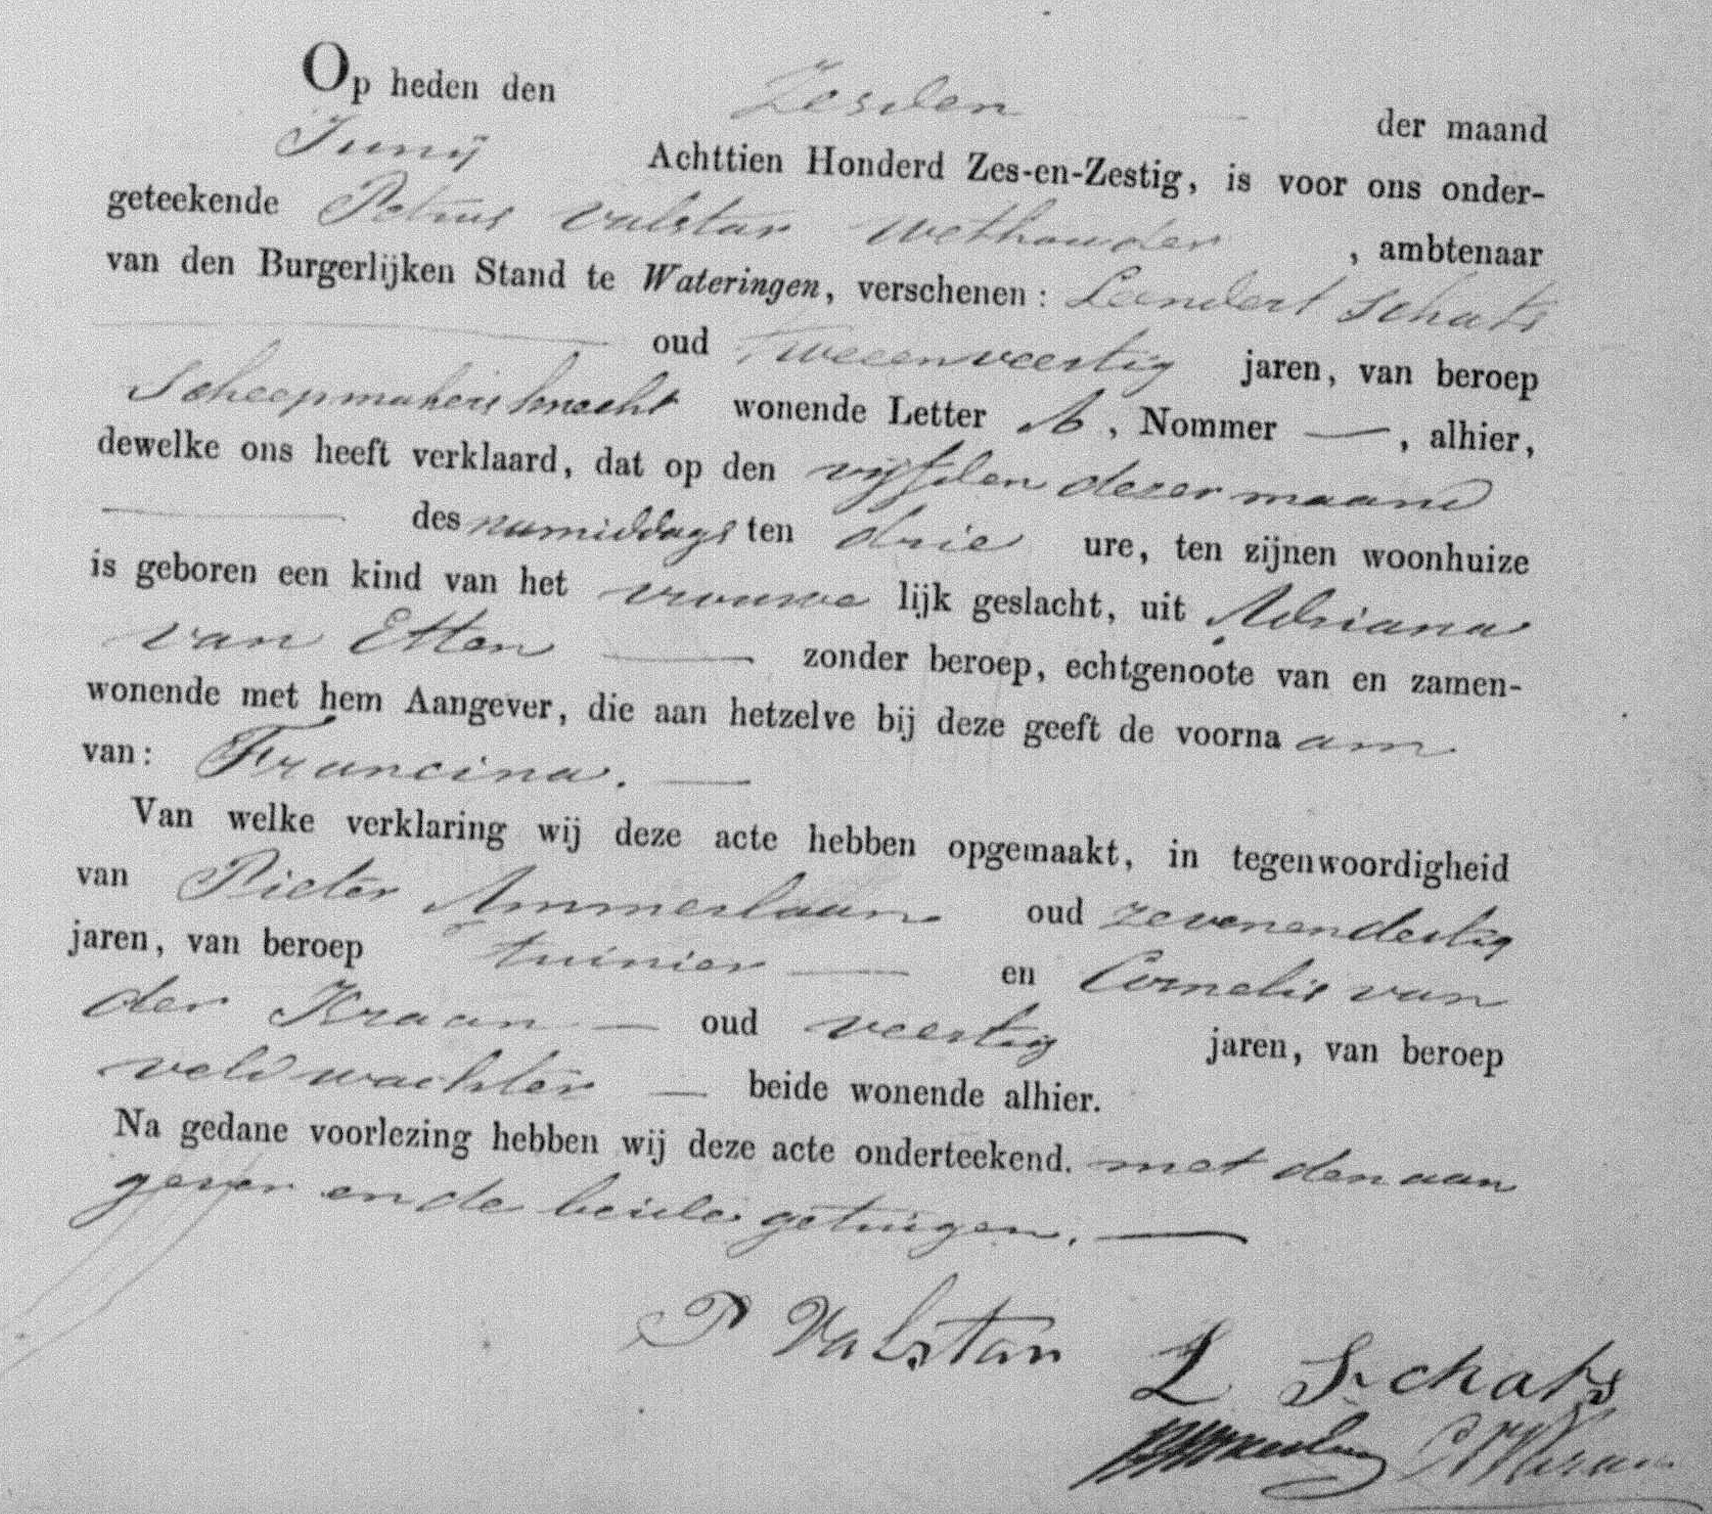 Op heden den Zesden der maand
Junij Achttien Honderd Zes-en-Zestig, is voor ons onder-
geteekende Petrus Valstar Wethouder , ambtenaar
van den Burgerlijken Stand te Wateringen, verschenen: Leendert Schats
oud Tweeenveertig jaren, van beroep
Scheepmakersknecht wonende Letter A, Nommer —, alhier,
dewelke ons heeft verklaard, dat op den vijfden dezer maand
des namiddags ten drie ure, ten zijnen woonhuize
is geboren een kind van het vrouwe lijk geslacht, uit Adriana
van Etten — zonder beroep, echtgenoote van en zamen-
wonende met hem Aangever, die aan hetzelve bij deze geeft de voorna am
van: Francina. —
Van welke verklaring wij deze acte hebben opgemaakt, in tegenwoordigheid
van Pieter Ammerlaan oud zevenendertig
jaren, van beroep tuinier — en Cornelis van
der Kraan — oud veertig jaren, van beroep
veldwachter — beide wonende alhier.
Na gedane voorlezing hebben wij deze acte onderteekend. met den aan
gever en de beide getuigen. —
P Valstar
L Schats